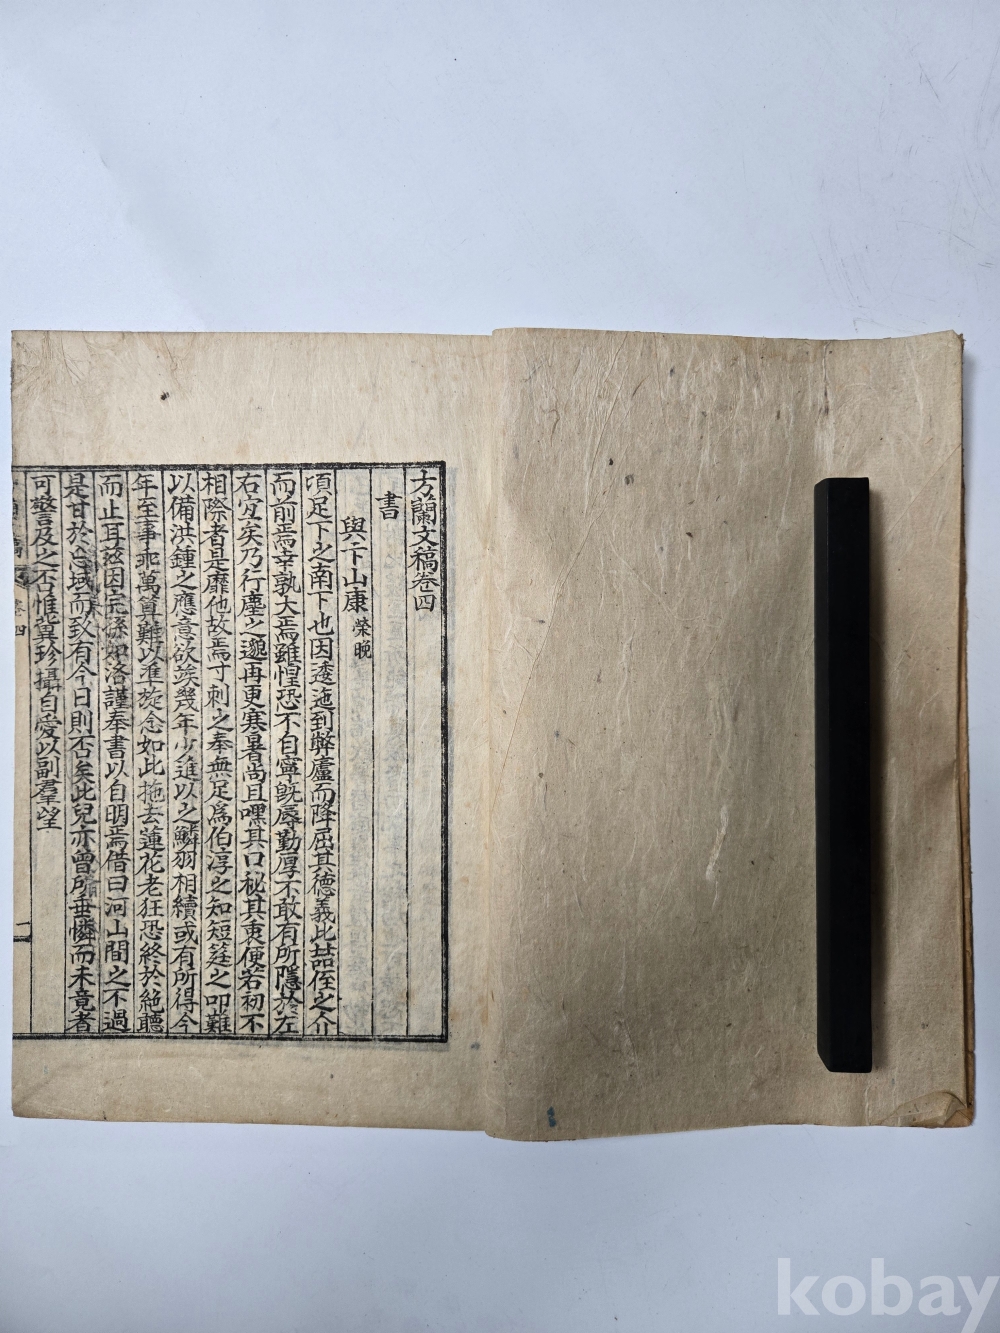 方蘭文稿卷四
書
與卞山康 榮晚
頃足下之南下也因逶迤到弊廬而降屈其德義比喆侄之介
而前焉幸孰大焉雖惶恐不自寧旣辱勤厚不敢有所隱於左
右宜矣乃行塵之邈再更寒暑尚且嘿其口秘其衷便若初不
相際者是靡他故焉寸刺之奉無足爲伯淳之知短莛之叩難
以備洪鍾之應意欲竢幾年少進以之鱗羽相續或有所得今
年至事乖萬算難以準旋念如此拖去蓮花老狂恐終於絶聽
而止耳玆因宗孫如洛謹奉書以自明焉借曰河山間之不過
是甘於忘域而致有今日則否矣此兒亦曾所垂憐而未竟者
可警及之否惟冀珍攝自愛以副羣望
卷四
kobay